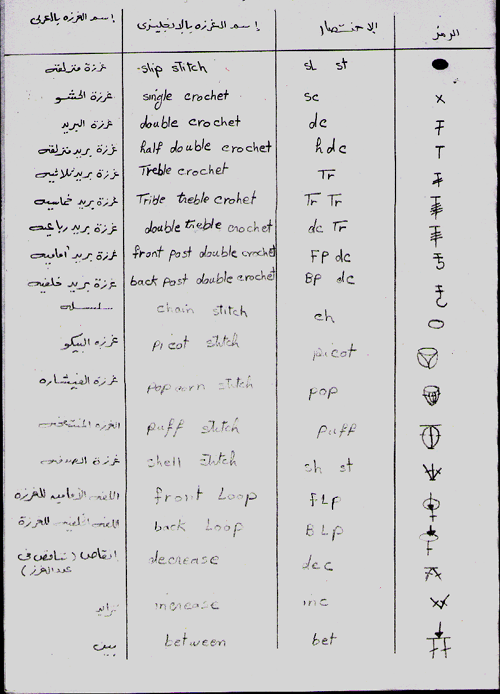 إسم الغرزه بالعربى إسم الغرزه بالإنجليزى الإختصار الرمز
غرزة منزلقه slip stitch sL st
غرزة الحشو single crochet sc x
غرزة البريد double crochet dc
غرزة بريد منزلقه half double crochet hdc T
غرزة بريد ثلاثيه Treble crochet Tr
غرزة بريد خماسيه treble crohet Tr Tr
غرزة بريد رباعيه double treble crochet dc Tr
غرزة بريد أماميه front post double crochet FP dc
غرزة بريد خلفيه back post double crochet BP dc
سلسله chain stitch ch
غرزه البيكو picot stitch picot
غرزة الفيشاره popcorn stitch pop
الغرزه المنتفخه puff stitch puff
غرزة الصدفه shell stitch sh st
اللفه الأماميه للغرزه front Loop FLp
اللفه الخلفيه للغرزة back Loop BLp
إنقاص (تناقص فى decrease dec
عدد الغرز)
تزايد increase inc
بين between bet